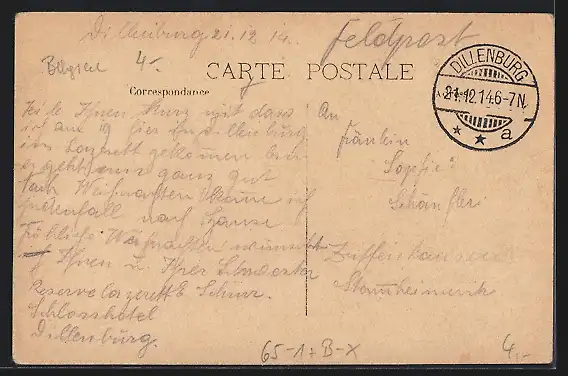 Dillenburg 21.12.14.
Feldpost
4.-
CARTE POSTALE
Correspondance
DILLENBURG
21.12.14.6-7N.
* * a
Teile Ihnen kurz mit dass
ich am 19 hier in Dillenburg
im Lazerett gekommen bin
es geht uns ganz gut
Nach Weihnachten komme ich
jedenfall nach Hause
Fröhliche Weihnachten wünscht
Ihnen u. Ihrer Schwester
Reserve Lazerett E. Schurr.
Schlosshotel
Dillenburg.
An
Fräulein
Sophie
Zuffenhausen
65-1+B-X
4,-